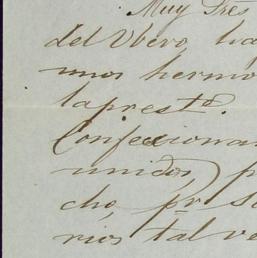 Muy Sres
del Ubero, ha
unos hermo
la preste.
Confeccionar
unidos, p
cho por su
rios tal ve